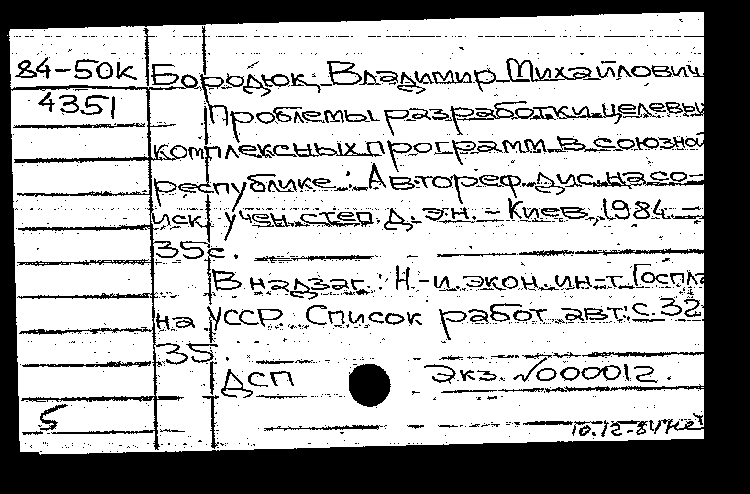 84-50к Бородюк, Владимир Михайлович
4351 Проблемы разработки целевы
комплексных программ в союзной
республике : Автореф. дис. на со-
иск. учен. степ. д. э.н. – Киев, 1984 –
35с.
В надзаг.: Н-и. экон. ин-т Госпла
на УССР. Список работ авт.: с. 32
35.
ДСП Экз. №000012.
5
10.12-84